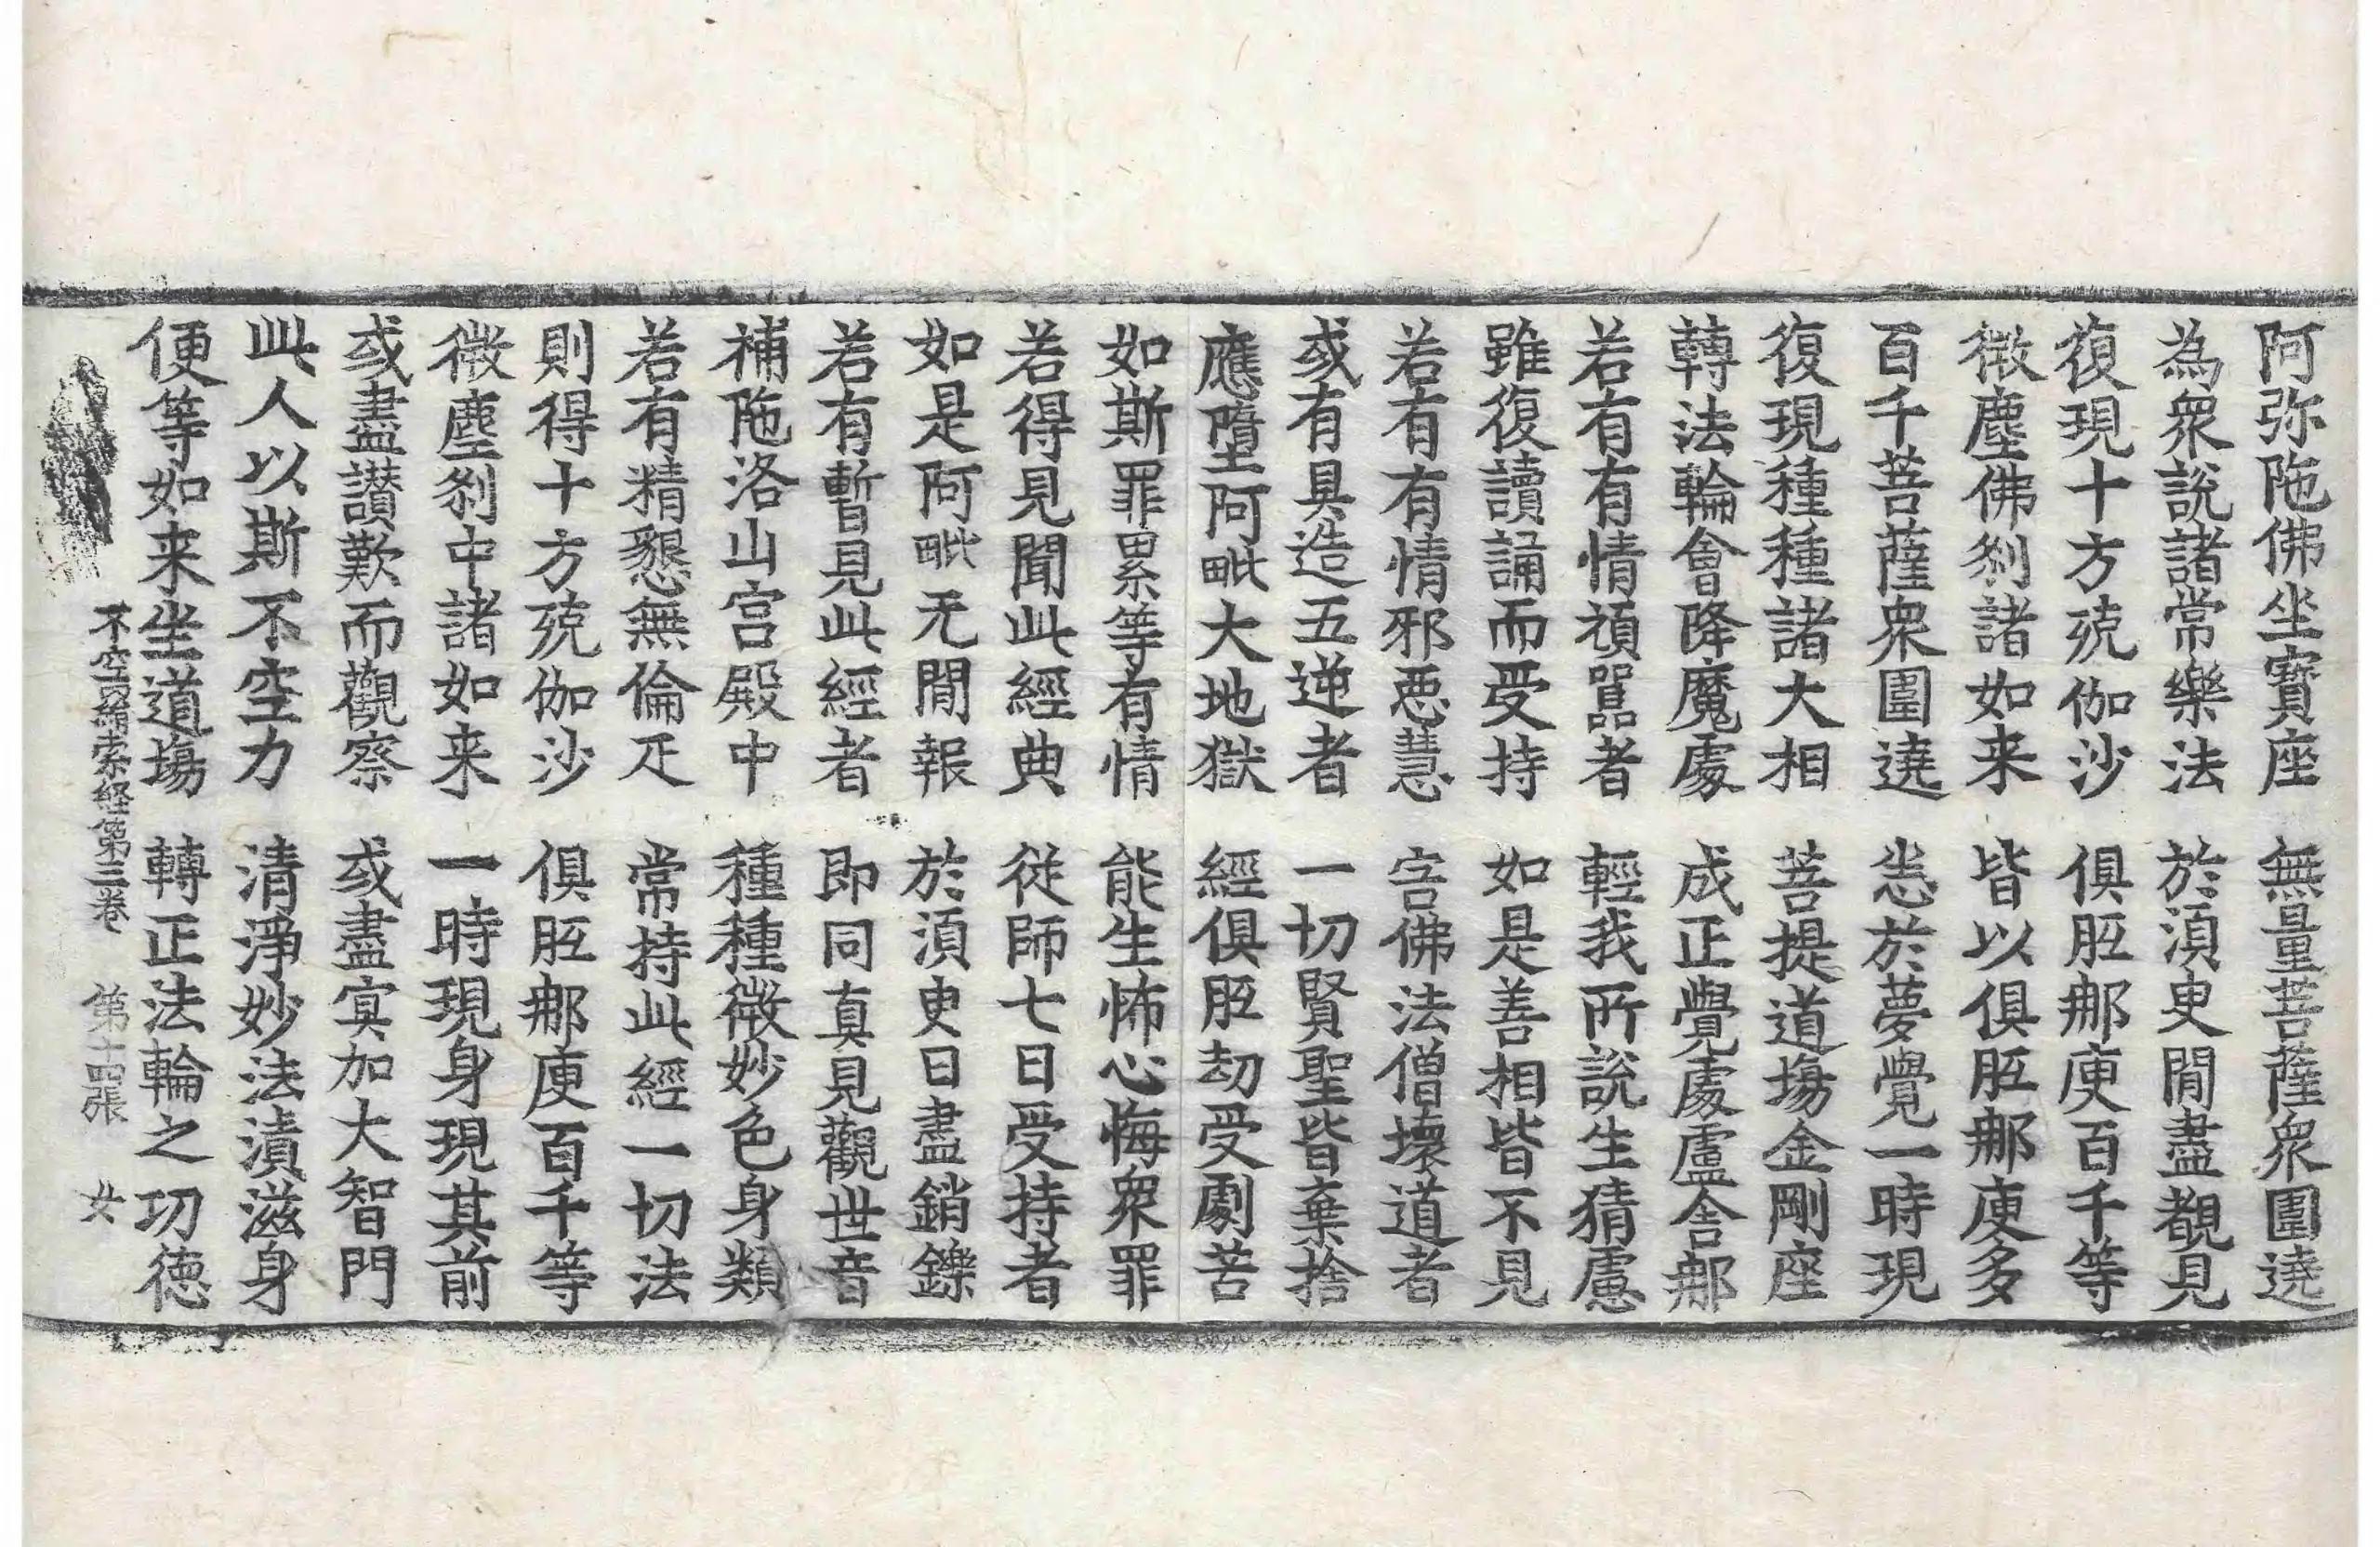 阿弥陁佛坐寶座　無量菩薩衆圍遶
為衆說諸常樂法　於湏臾閒盡覩見
復現十方殑伽沙　俱胝郍庾百千等
微塵佛剎諸如来　皆以俱胝郍庾多
百千菩薩衆圍遶　恙於夢覺一時現
復現種種諸大相　菩提道場金剛座
轉法輪會降魔處　成正覺處盧舍郍
若有有情頑嚚者　輕我所說生猜慮
雖復讀誦而受持　如是善相皆不見
若有有情邪惡慧　害佛法僧壞道者
或有具造五逆者　一切賢聖皆棄捨
應墮阿毗大地獄　經俱胝劫受劇苦
如斯罪累等有情　能生怖心悔衆罪
若得見聞此經典　從師七日受持者
如是阿毗无閒報　於湏臾日盡銷鑠
若有暫見此經者　即同真見觀世音
補陁洛山宫殿中　種種微妙色身類
若有精懇無倫疋　常持此經一切法
則得十方殑伽沙　俱胝郍庾百千等
微塵剎中諸如来　一時現身現其前
或盡讃歎而觀察　或盡冥加大智門
此人以斯不空力　清淨妙法漬滋身
便等如来坐道塲　轉正法輪之功德
不空罥索経第三卷　第十四張　女